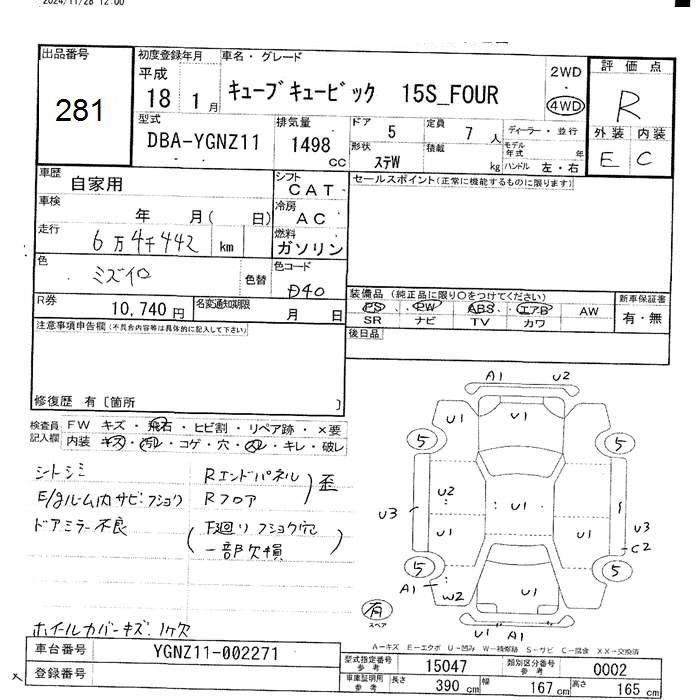 2024/11/28 12:00
出品番号
281
初度登録年月
平成
18 1 月
車名・グレード
キューブキュービック 15S_FOUR
2WD
4WD
評価点
R
外装 内装
E C
型式
DBA-YGNZ11
排気量
1498
CC
ドア
5
定員
7 人
形状
ステW
積載
kg
ディーラー・並行
モデル年式 年
ハンドル 左・右
車歴
自家用
シフト
CAT
車検
年 月( 日)
冷房
AC
走行
6万4千442 km
燃料
ガソリン
色
ミズイロ
色替
色コード
D40
R券
10,740 円
名変通知期限
月 日
セールスポイント(正常に機能するものに限ります)
装備品 (純正品に限り○をつけてください)
PS PW ABS エアB AW
SR ナビ TV カワ
新車保証書
有・無
後日品
注意事項申告欄(不具合内容等は具体的に記入して下さい)
修復歴 有〔箇所 〕
検査員記入欄
FW キズ・飛石・ヒビ割・リペア跡・×要
内装 キズ・汚レ・コゲ・穴・スレ・キレ・破レ
シトシミ
E/gルーム内サビ・フショク
ドアミラー不良
Rエンドパネル
Rフロア
歪
(下廻りフショク穴
一部欠損)
ホイルカバーキズ・1ケ欠
A1 U2
U1 U1 U1
5 5
U2 U1
U3 U1 U1 U3
C2
5 5
A1 W2 U1 U1
U1 A1
有
スペア
A-キズ E-エクボ U-凹み W-補修跡 S-サビ C-腐食 XX-交換済
車台番号
YGNZ11-002271
登録番号
型式指定番号
参考
15047
類別区分番号
参考
0002
車庫証明用
参考
長さ 390 cm
幅 167 cm
高さ 165 cm